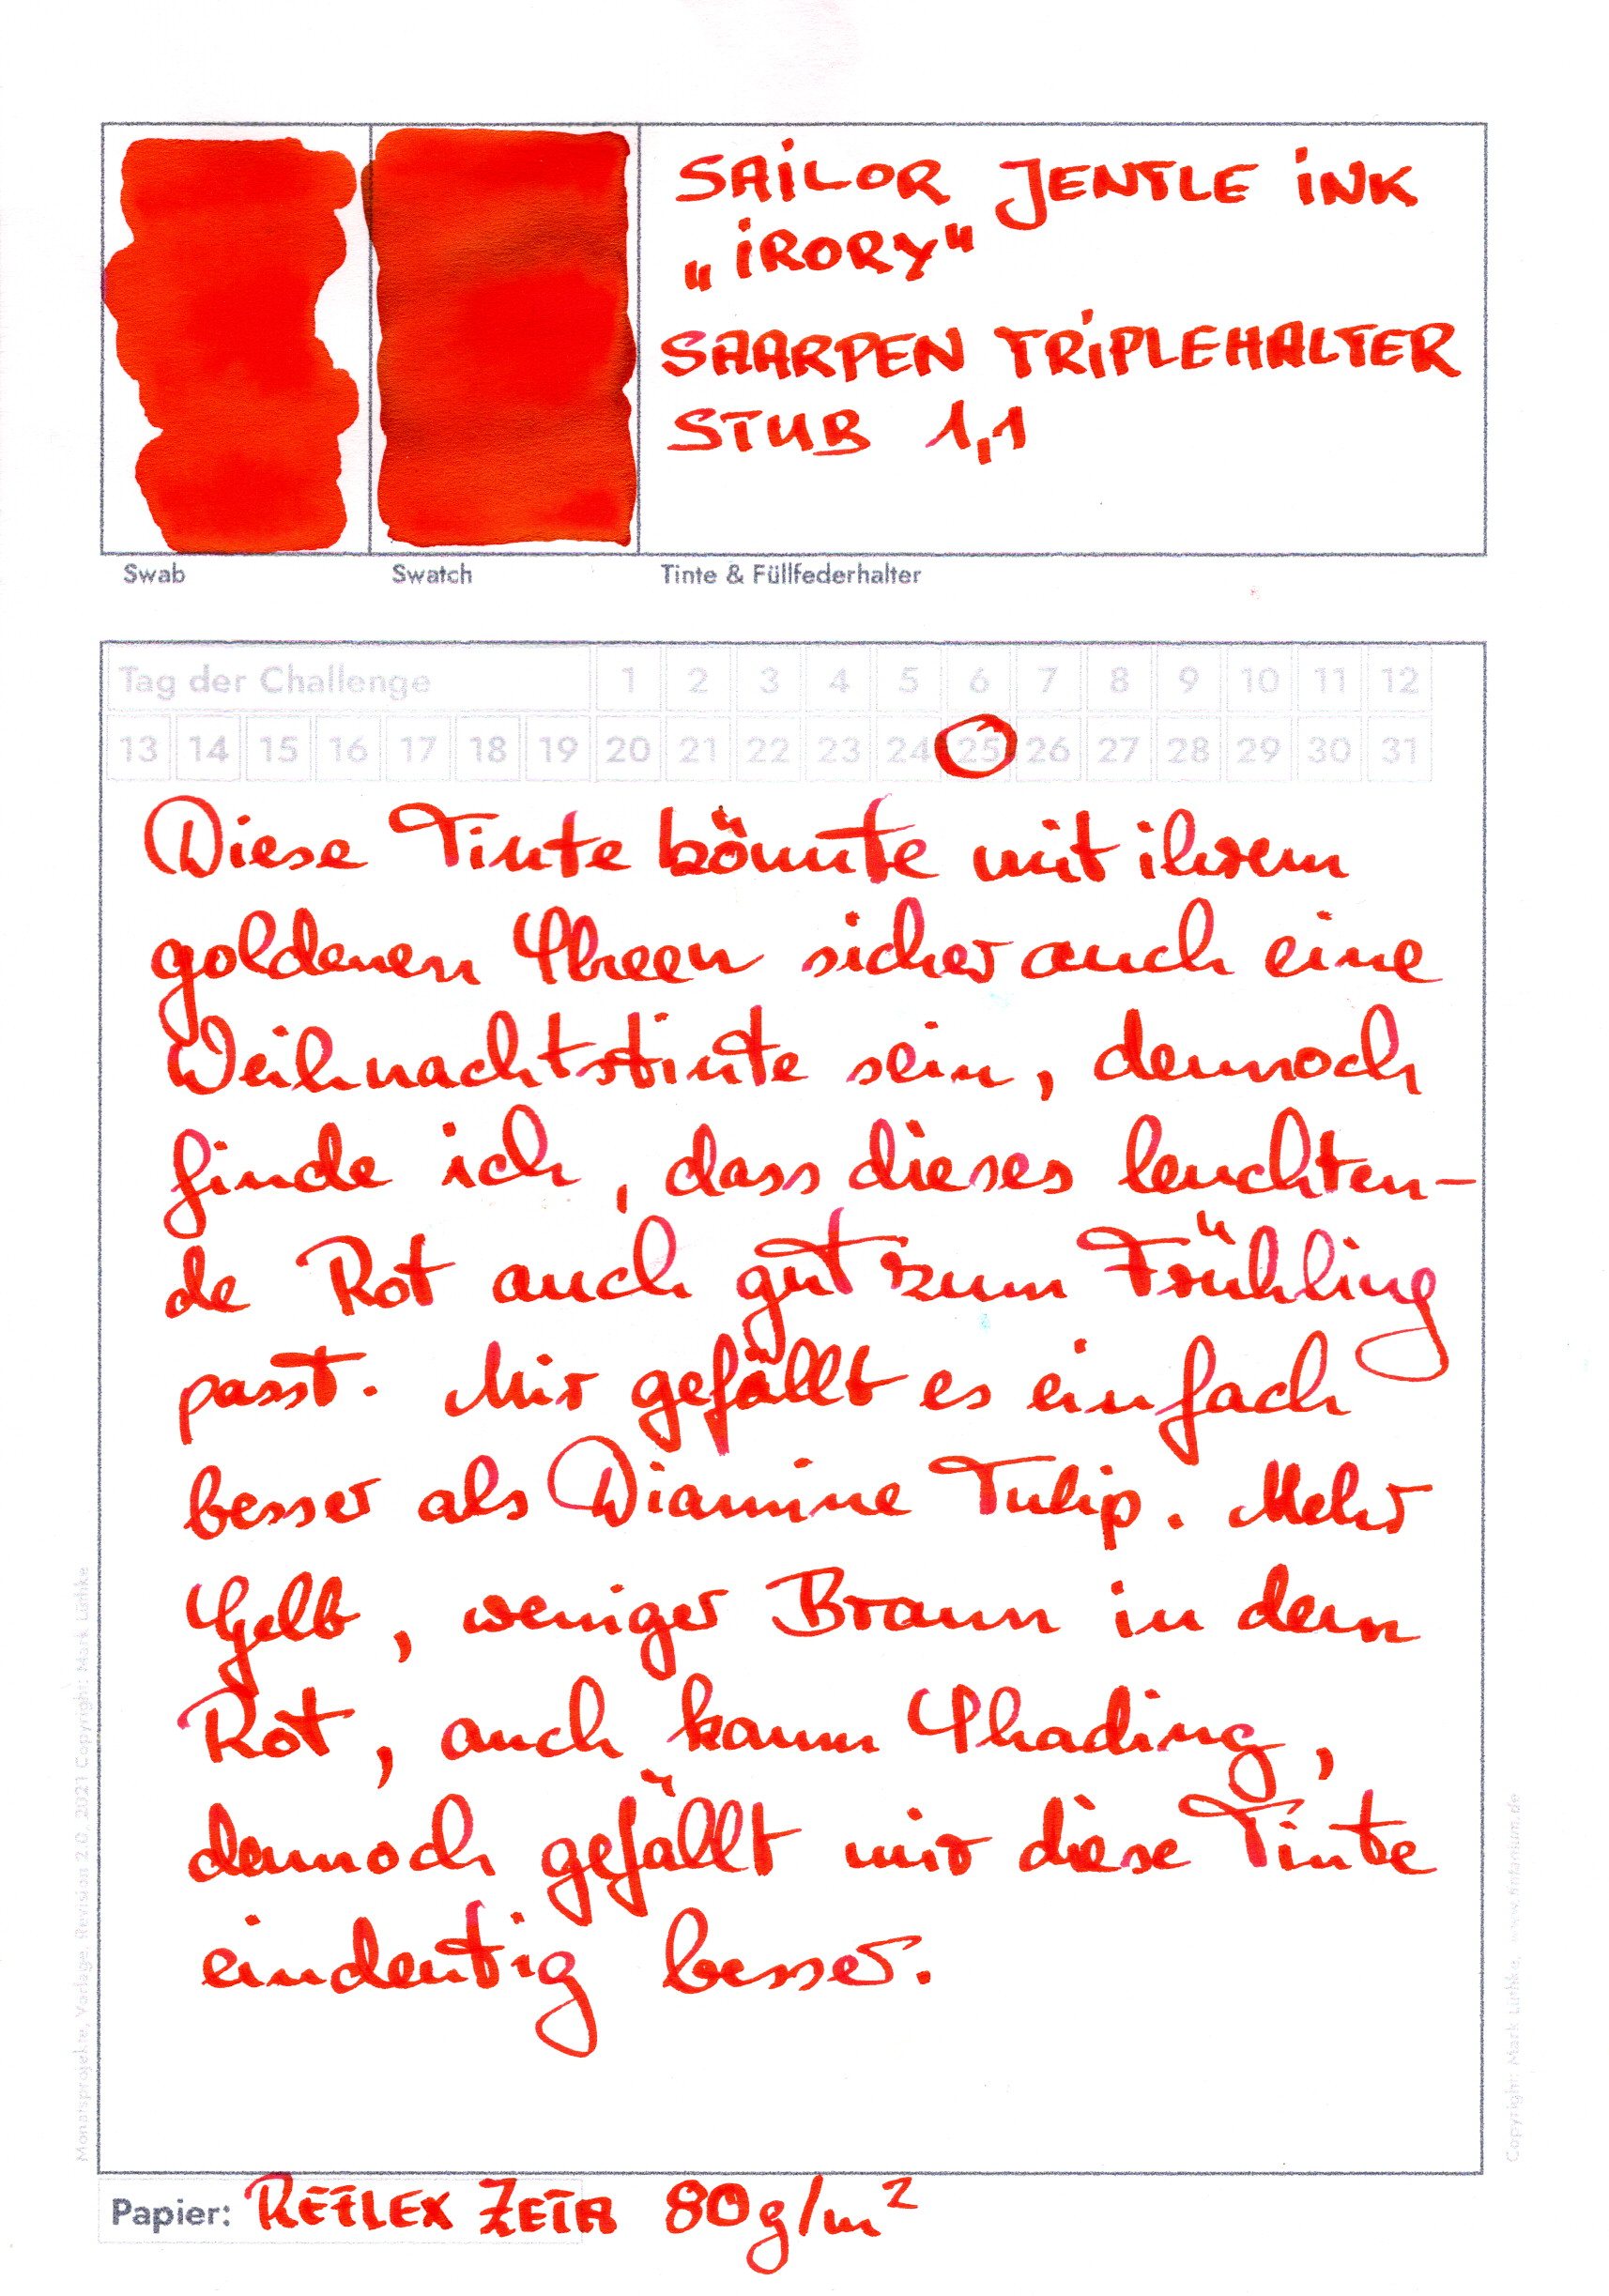 SAiLOR JENTLE iNK
„iRORY“
SAARPEN TRiPLEHALTER
STUB 1,1
Swab
Swatch
Tinte & Füllfederhalter
Tag der Challenge 1 2 3 4 5 6 7 8 9 10 11 12
13 14 15 16 17 18 19 20 21 22 23 24 25 26 27 28 29 30 31
Diese Tinte könnte mit ihrem
goldenen Sheen sicher auch eine
Weihnachtstinte sein, dennoch
finde ich, dass dieses leuchten-
de Rot auch gut zum Frühling
passt. Mir gefällt es einfach
besser als Diamine Tulip. Mehr
Gelb, weniger Braun in dem
Rot, auch kaum Shading,
dennoch gefällt mir diese Tinte
eindeutig besser.
Papier: REFLEX ZETA 80g/m²
Monatsprojekte, Vorlage, Revision 2.0, 2021 Copyright: Mark Linhke
Copyright: Mark Linhke, www.tintanium.de